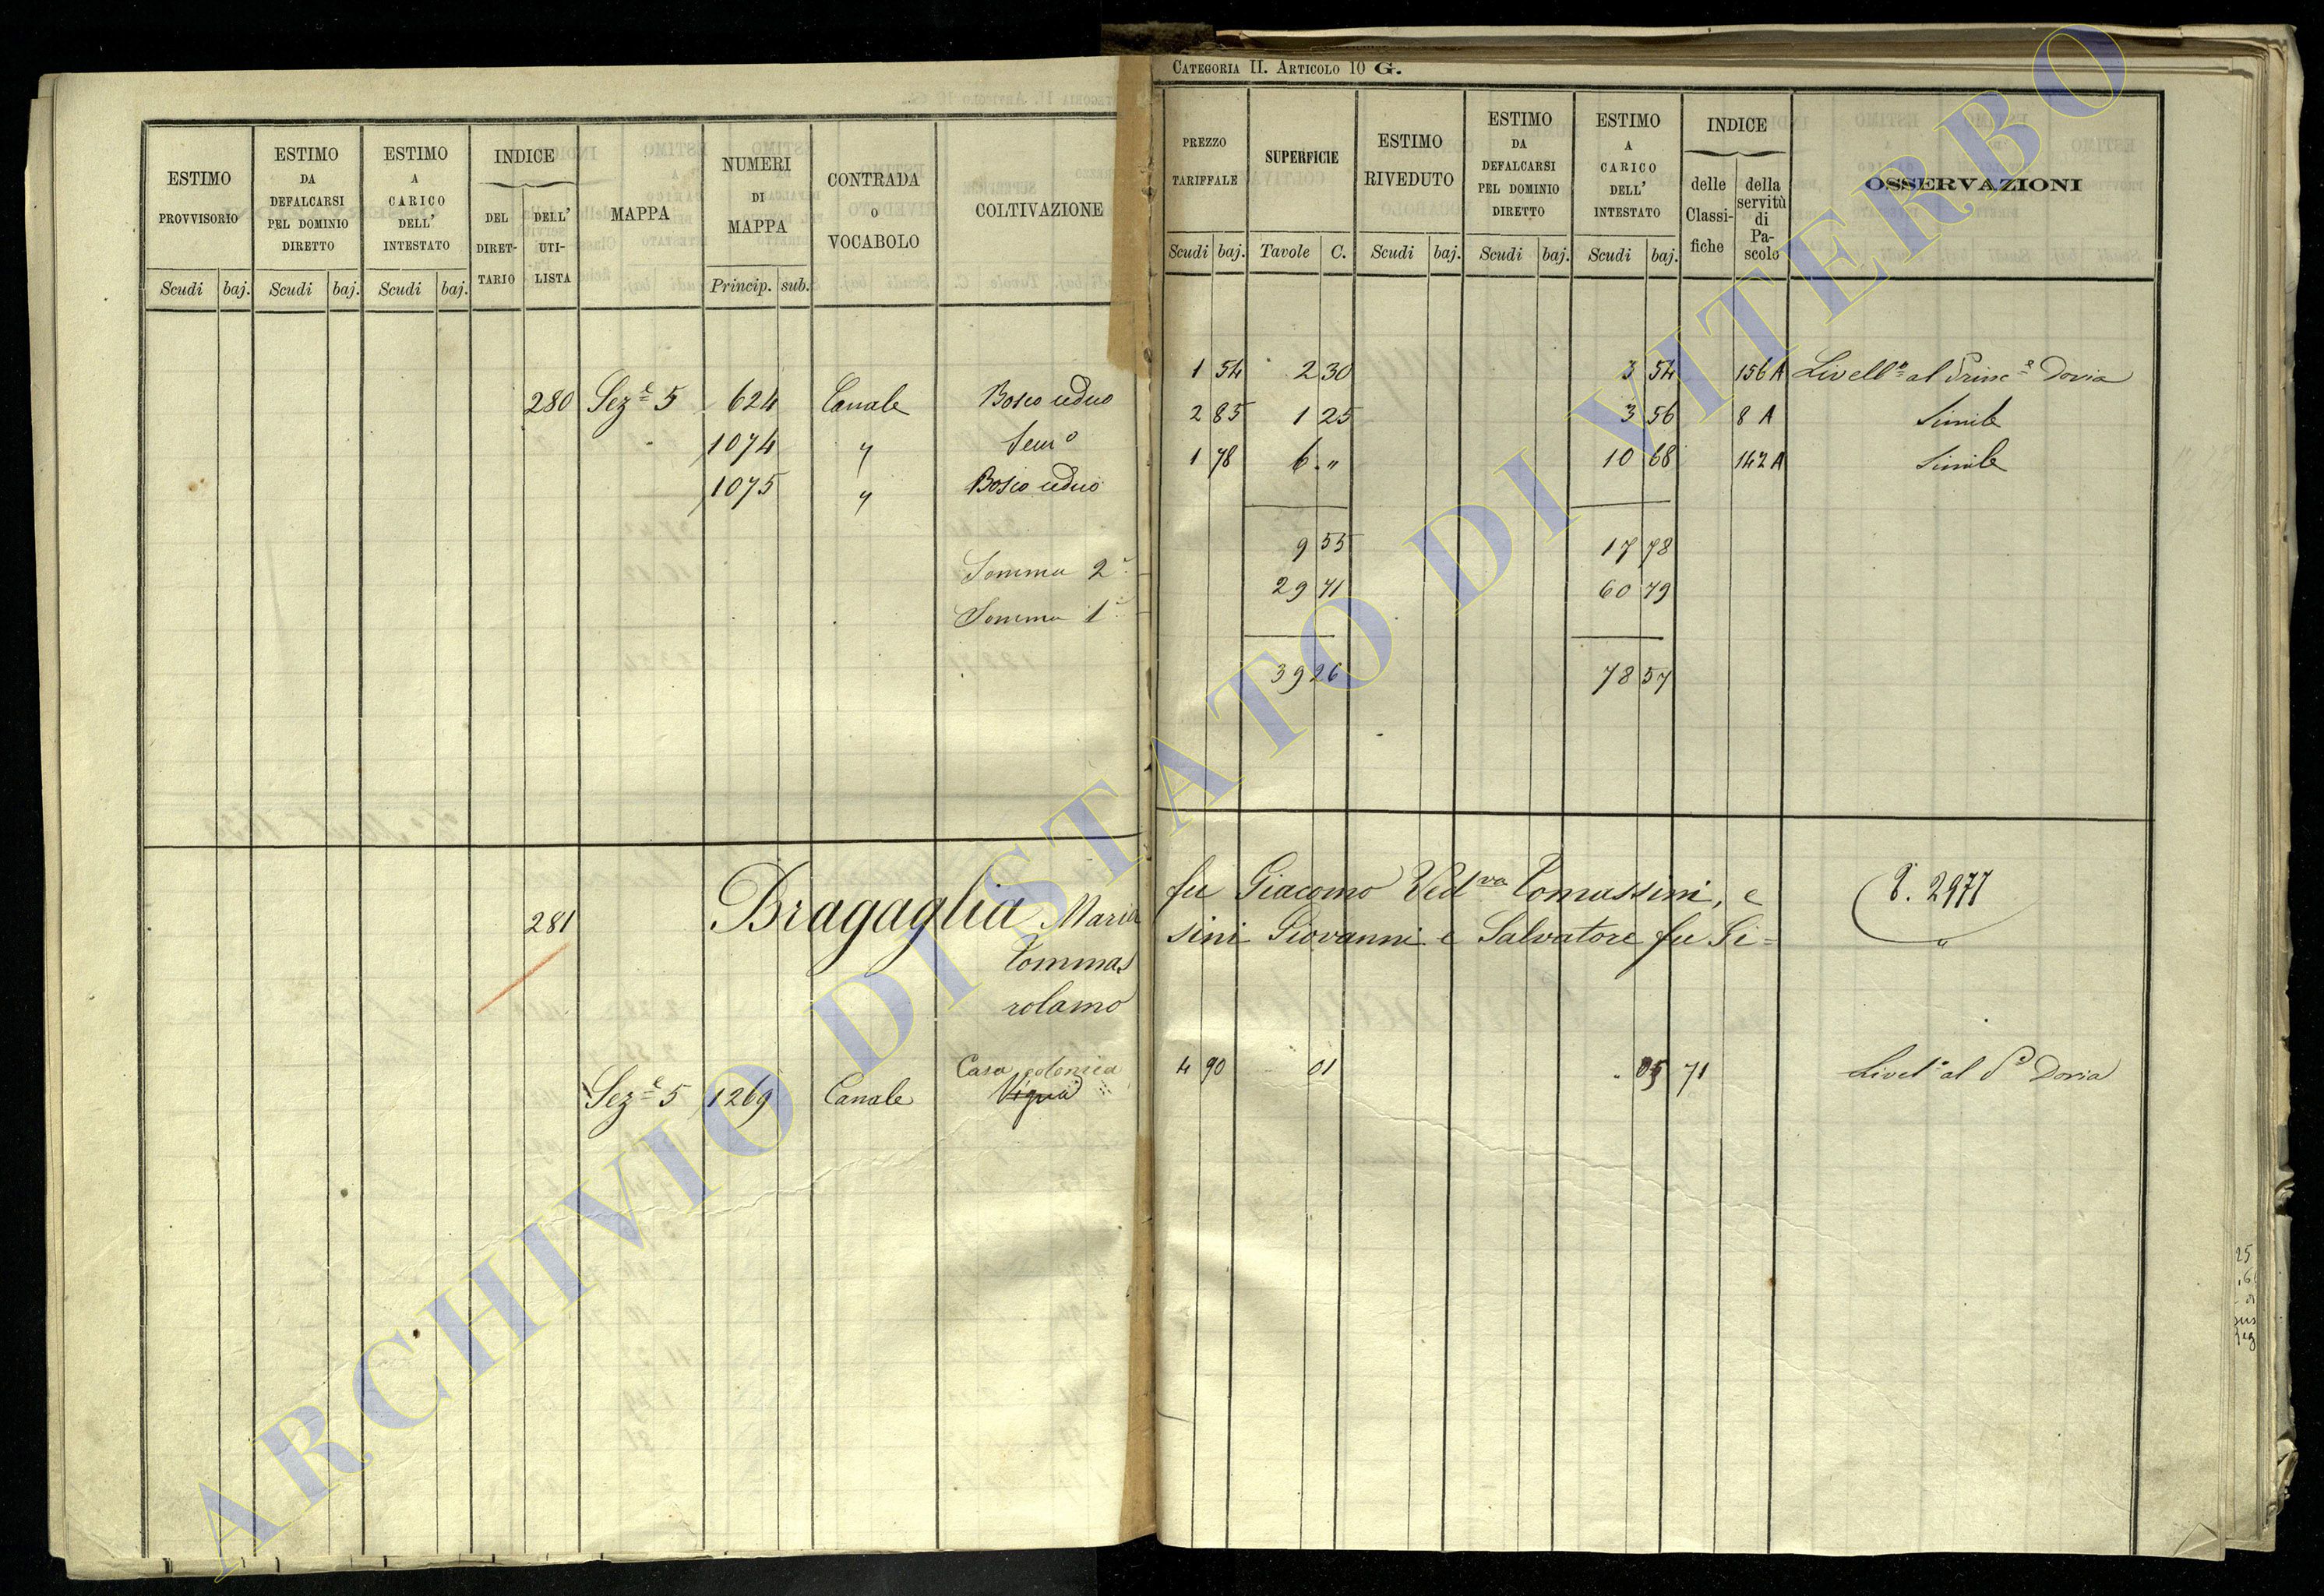 CATEGORIA II. ARTICOLO 10 G.
ESTIMO PROVVISORIO Scudi baj.
ESTIMO DA DEFALCARSI PEL DOMINIO DIRETTO Scudi baj.
ESTIMO A CARICO DELL' INTESTATO Scudi baj.
INDICE DEL DIRETTARIO DELL' UTILISTA
MAPPA
NUMERI DI MAPPA Princip. sub.
CONTRADA O VOCABOLO
COLTIVAZIONE
PREZZO TARIFFALE Scudi baj.
SUPERFICIE Tavole C.
ESTIMO RIVEDUTO Scudi baj.
ESTIMO DA DEFALCARSI PEL DOMINIO DIRETTO Scudi baj.
ESTIMO A CARICO DELL' INTESTATO Scudi baj.
INDICE delle Classifiche della servitù di Pascolo
OSSERVAZIONI
280 Sez.e 5 624 Canale Bosco ceduo 1 54 2 30 3 54 156 A Livell.o al Princ.e Doria
1074 " Sem.o 2 85 1 25 3 56 8 A Simile
1075 " Bosco ceduo 1 78 6 " 10 68 142 A Simile
9 55 17 78
Somma 2a 29 71 60 79
Somma 1a
39 26 78 57
281 Bragaglia Maria fu Giacomo Ved.va Tomassini, e P. 2977
Tommassini Giovanni e Salvatore fu Gi=
rolamo
Casa colonica
Sez.e 5 1269 Canale Vigna 4 90 01 05 71 Livel.o al P.e Doria
ARCHIVIO DI STATO DI VITERBO